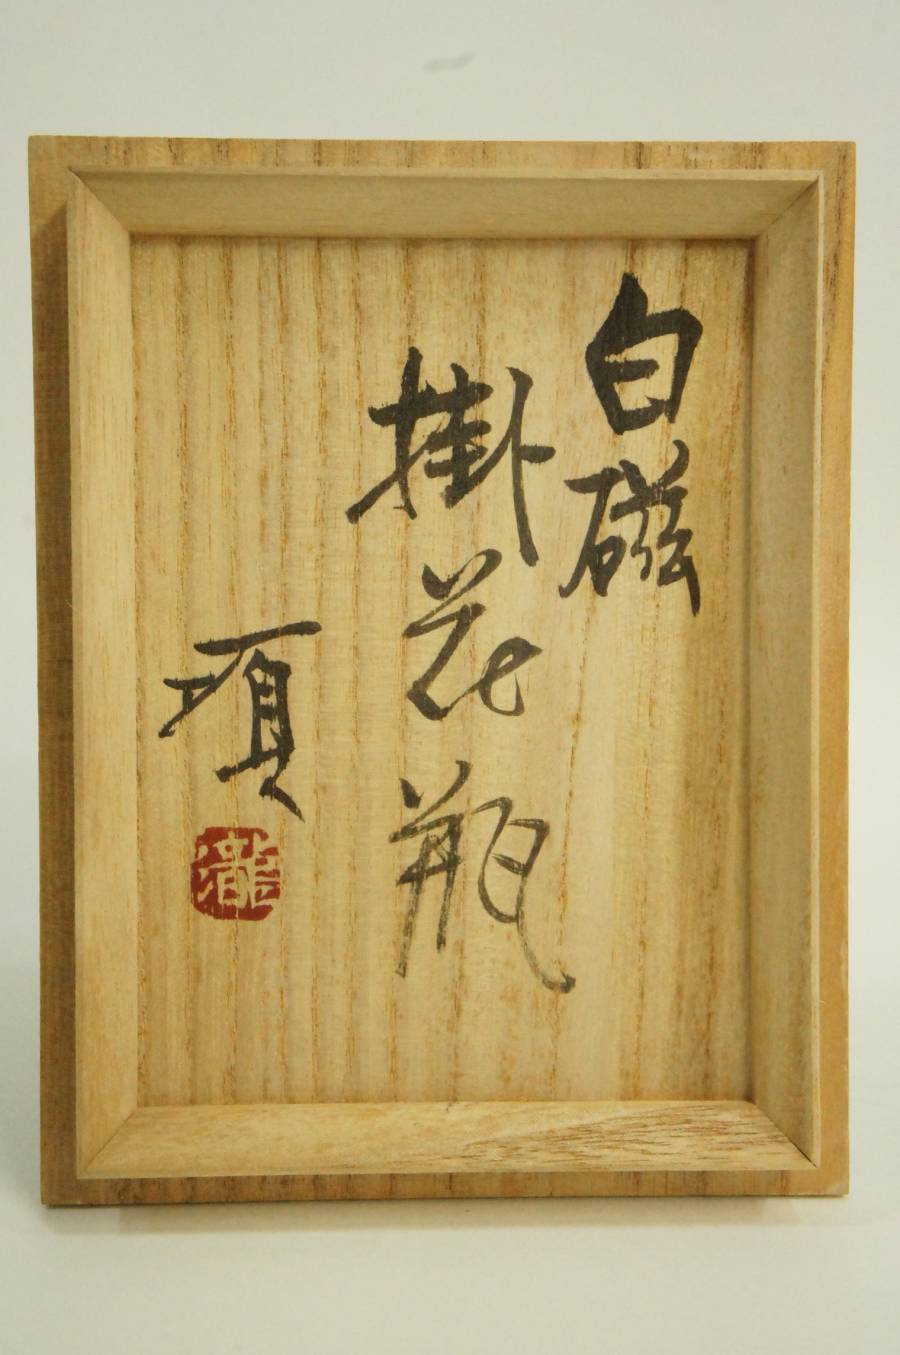 白磁
掛花瓶
項
瀧